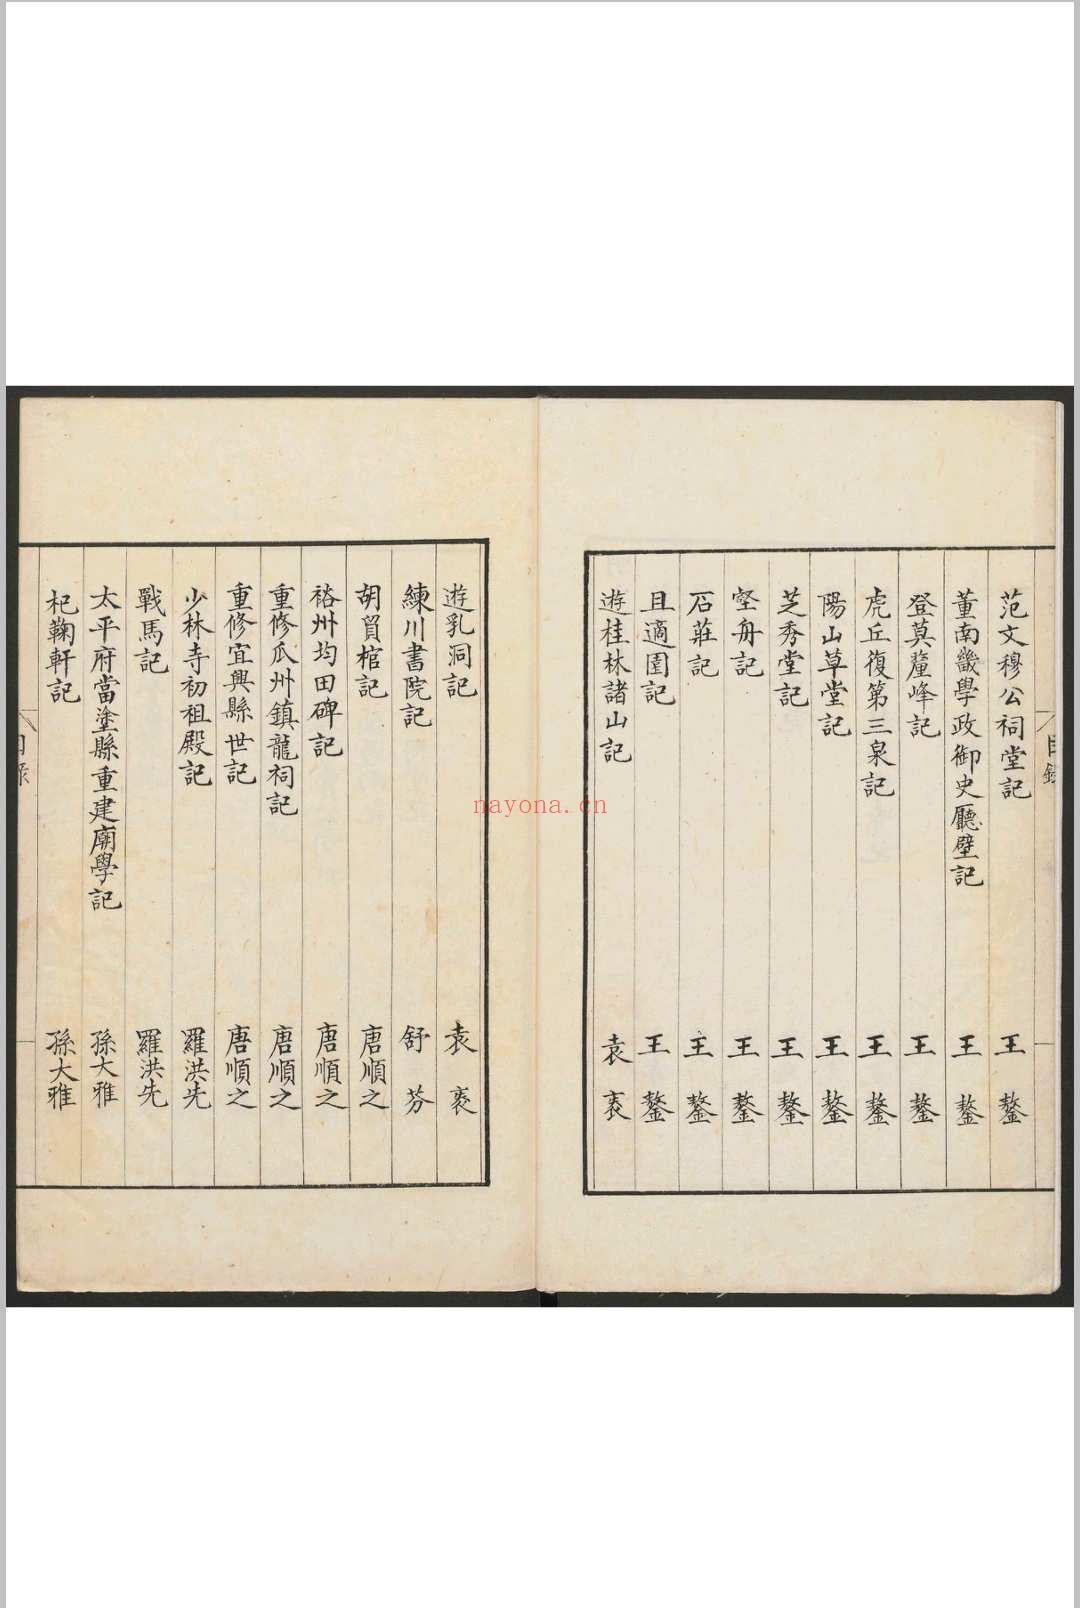 目錄
范文穆公祠堂記 王鏊
董南畿學政御史廳壁記 王鏊
登莫釐峰記 王鏊
虎丘復第三泉記 王鏊
陽山草堂記 王鏊
芝秀堂記 王鏊
壑舟記 王鏊
石莊記 王鏊
且適園記 王鏊
遊桂林諸山記 袁袠
遊乳洞記 袁袠
練川書院記 舒芬
胡貿棺記 唐順之
裕州均田碑記 唐順之
重修瓜州鎮龍祠記 唐順之
重修宜興縣世記 唐順之
少林寺初祖殿記 羅洪先
戰馬記 羅洪先
太平府當塗縣重建廟學記 孫大雅
杞鞠軒記 孫大雅
目錄
nayona.cn